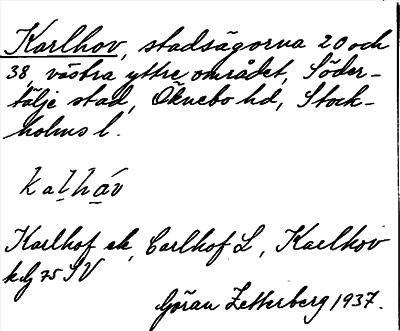 Karlhov, stadsägorna 20 och
38, västra yttre området, Söder-
tälje stad, Öknebo hd, Stock-
holms l.
kaḷhá̱v
Karlhof ek, Carlhof L, Karlhov
kbg 75 SV
Göran Zetterberg 1937.